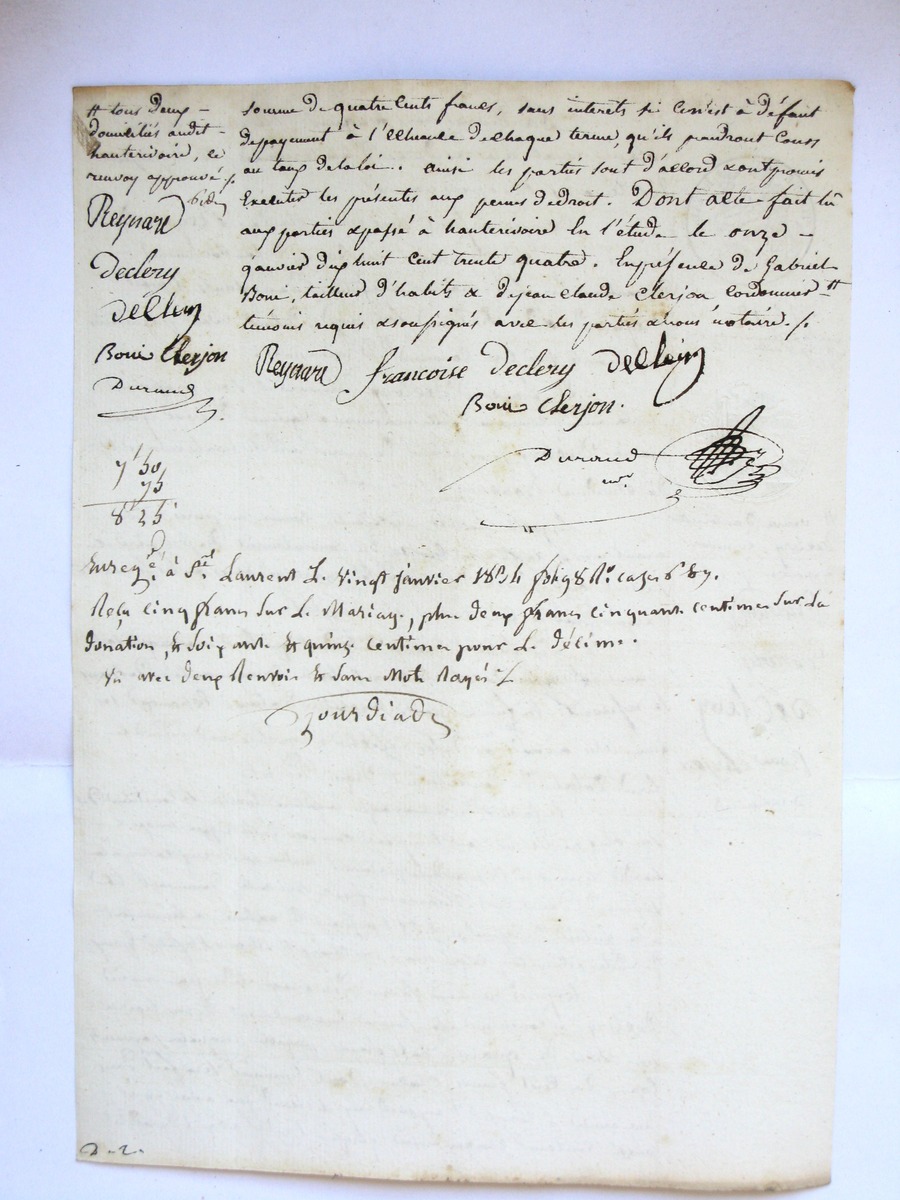 # tous deux
domiciliés audit
hauterivoire, le
renvoy approuvé ./.
Reynard
declery
Boiri Clerjon
Durand
somme de quatre cents francs, sans interets si ce n'est à défaut
de payement à l'echéance de chaque terme, qu'ils prendront cours
au taux de la loi. ainsi les parties sont d'accord & ont promis
Executer les présentes aux peines de droit. Dont acte fait lu
aux parties & passé à hauterivoire En l'étude le onze
janvier dix huit cent trente quatre. En présence de Gabriel
Boiri, tailleur d'habits & de jean claude Clerjon cordonnier #
témoins requis & soussignés avec les parties & nous notaire ./.
Reynard francoise declery
Boiri Clerjon.
Durand
nre
7 50
75
8 25
Enregé. à St. Laurent Le vingt janvier 1834 
Reçu cinq francs sur Le Mariage, plus deux francs cinquante centimes sur La
donation, & soixante & quinze centimes pour Le décime.
vu avec deux Renvois & sans Mots Rayés ./.
D. 2.